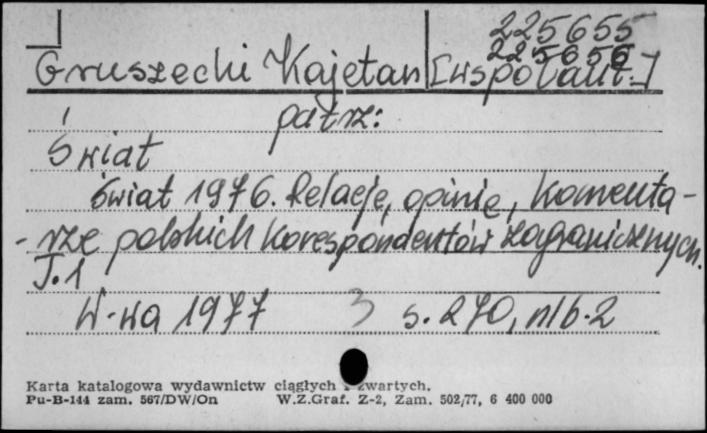 225655
225656
Gruszecki Kajetan [współaut.]
patrz:
Świat
Świat 1976. Relacje, opinie, komenta-
-rze polskich korespondentów zagranicznych.
T.1
W-wa 1977 3 s. 270, nlb. 2
Karta katalogowa wydawnictw ciągłych i zwartych.
Pu-B-144 zam. 567/DW/On W.Z.Graf. Z-2, Zam. 502/77, 6 400 000